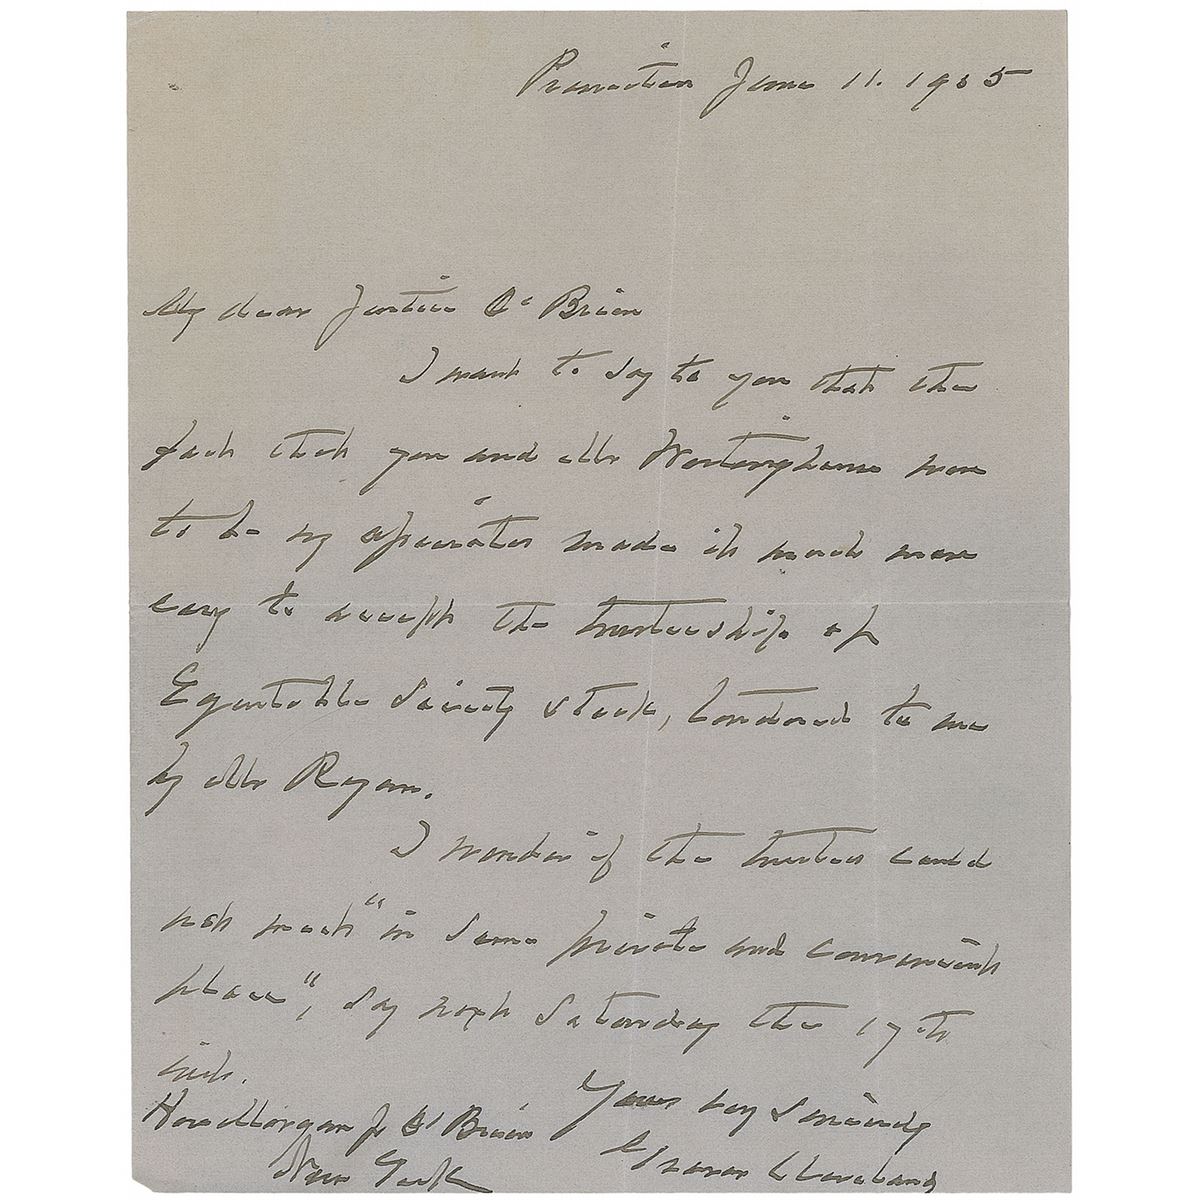 Princeton June 11. 1905
My dear Justice O'Brien
I want to say to you that the
fact that you and Mr Westinghouse were
to be my associates made it much more
easy to accept the trusteeship of
Equitable Society stock, tendered to me
by Mr Ryan.
I wonder if the trustees could
not meet "in some private and convenient
place", say next Saturday the 17th
inst.
Yours very sincerely
Hon Morgan J O'Brien
Grover Cleveland
New York